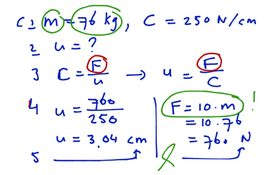 C1 m = 76 kg, C = 250 N/cm
2 u = ?
3 C = F/u → u = F/C
4 u = 760/250
u = 3.04 cm
5
F = 10 . m !
= 10 . 76
= 760 N